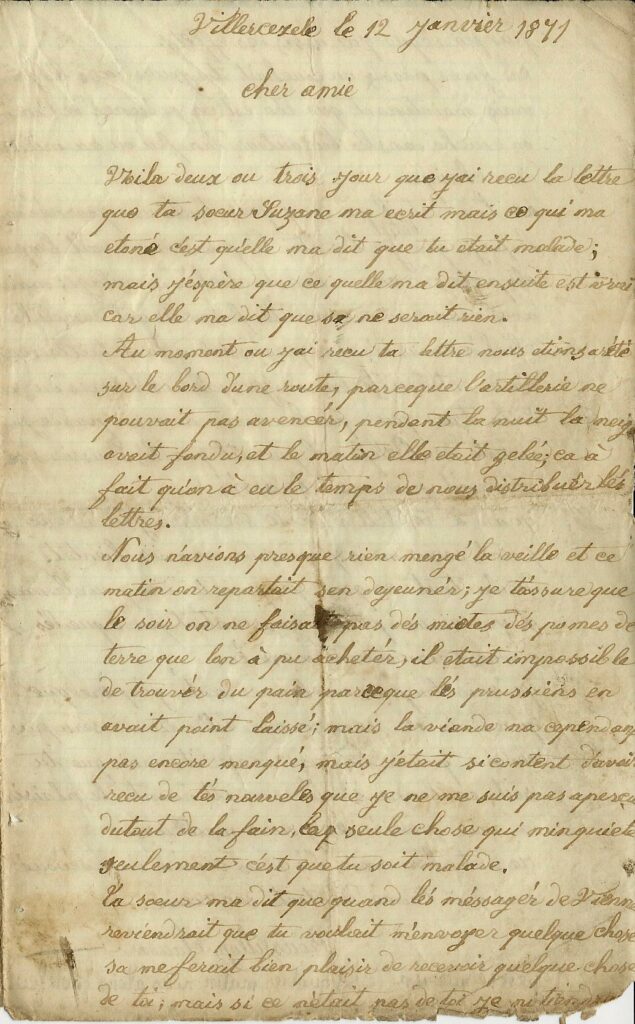 Villercexele le 12 janvier 1871
cher amie
Voila deux ou trois jour que j'ai recu la lettre
que ta soeur Suzane ma ecrit mais ce qui ma
etoné c'est qu'elle ma dit que tu etait malade;
mais j'éspère que ce quelle ma dit ensuite est vrai
car elle ma dit que sa ne serait rien.
Au moment ou j'ai recu ta lettre nous etions arété
sur le bord d'une route, parceque l'artillerie ne
pouvait pas avencér, pendent la nuit la neij
avait fondu, et le matin elle etait geleé; ca à
fait qu'on à eu le temps de nous distribuér lés
lettres.
Nous n'avions presque rien mengé la veille et ce
matin on repartait sen dejeunér; je t'assure que
le soir on ne faisait pas dés miétes dés pomes de
terre que lon à pu achetér, il etait impossible
de trouvér du pain parceque lés prussiens en
avait point laissé; mais la viande na cependan
pas encore menqué, mais j'était si content d'avoir
recu de tés nouveles que je ne me suis pas aperçu
dutout de la fain, seule chose qui minquiéte
seulement c'ést que tu soit malade.
Ta soeur ma dit que quand lés méssagér de Vienne
reviendrait que tu voulait m'envoyer quelque chose
sa me ferait bien plaisir de recevoir quelque chose
de toi; mais si ce n'etait pas de toi je ni tiendrai